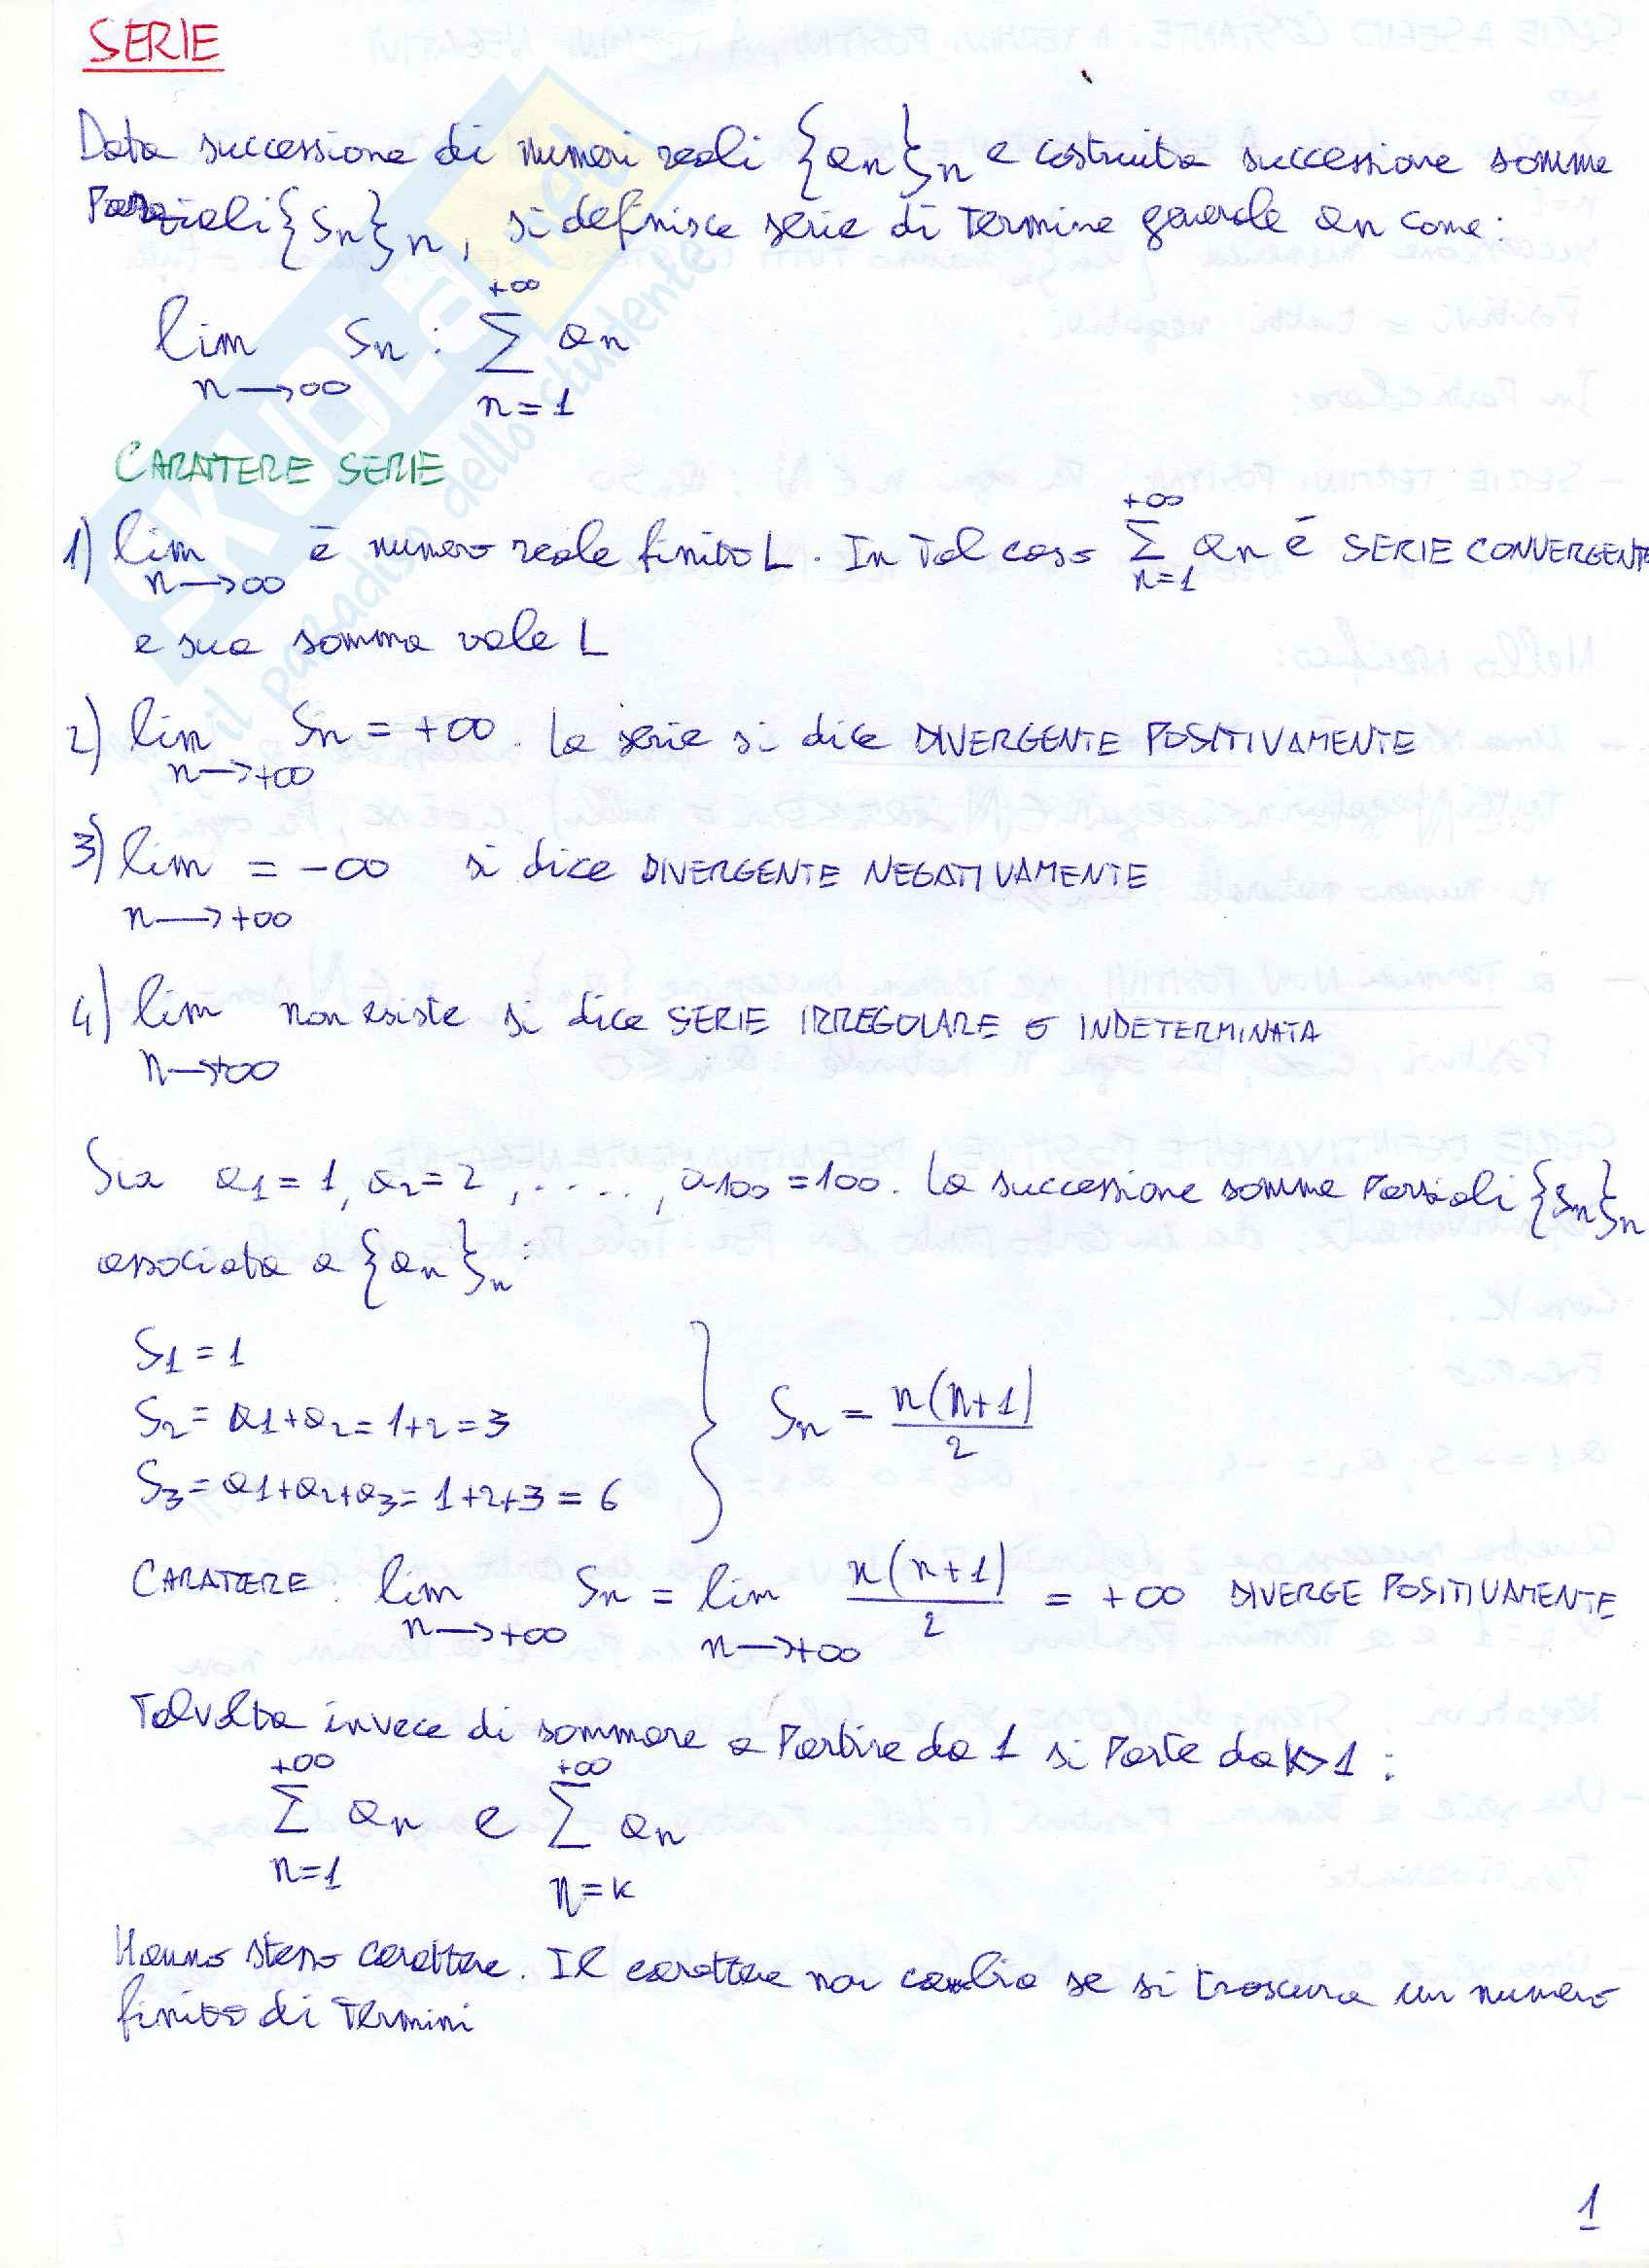 SERIE
Data successione di numeri reali {an}n e costruita successione somme
Parziali {Sn}n, si definisce serie di termine generale an come:
lim n→∞ Sn : +∞ Σ n=1 an
CARATTERE SERIE
1) lim n→∞ è numero reale finito L. In tal caso +∞ Σ n=1 an è SERIE CONVERGENTE
e sua somma vale L
2) lim n→+∞ Sn = +∞. la serie si dice DIVERGENTE POSITIVAMENTE
3) lim n→+∞ = -∞ si dice DIVERGENTE NEGATIVAMENTE
4) lim n→+∞ non esiste si dice SERIE IRREGOLARE o INDETERMINATA
Sia a1 = 1, a2 = 2, ....., a100 = 100. La successione somme Parziali {Sn}n
associata a {an}n:
S1 = 1
S2 = a1+a2 = 1+2 = 3
S3 = a1+a2+a3 = 1+2+3 = 6
Sn = n(n+1)/2
CARATTERE: lim n→+∞ Sn = lim n→+∞ n(n+1)/2 = +∞ DIVERGE POSITIVAMENTE
Talvolta invece di sommare a Partire da 1 si Parte da K>1 :
+∞ Σ n=1 an e +∞ Σ n=k an
Hanno stesso carattere. Il carattere non cambia se si trascura un numero
finito di Termini
1
SKUOLA.net
il paradiso dello studente